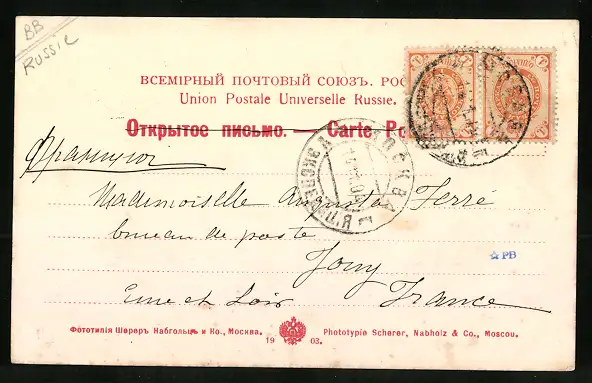 BB
RUSSIE
ВСЕМІРНЫЙ ПОЧТОВЫЙ СОЮЗЪ. РОС
Union Postale Universelle Russie.
Открытое письмо. — Carte Po
Франція
Mademoiselle Augusta Ferré
bureau de poste
PB
Jouy
Eure et Loir France
Фототипія Шереръ Набгольцъ и Ко., Москва. 1903. Phototypie Scherer, Nabholz & Co., Moscou.